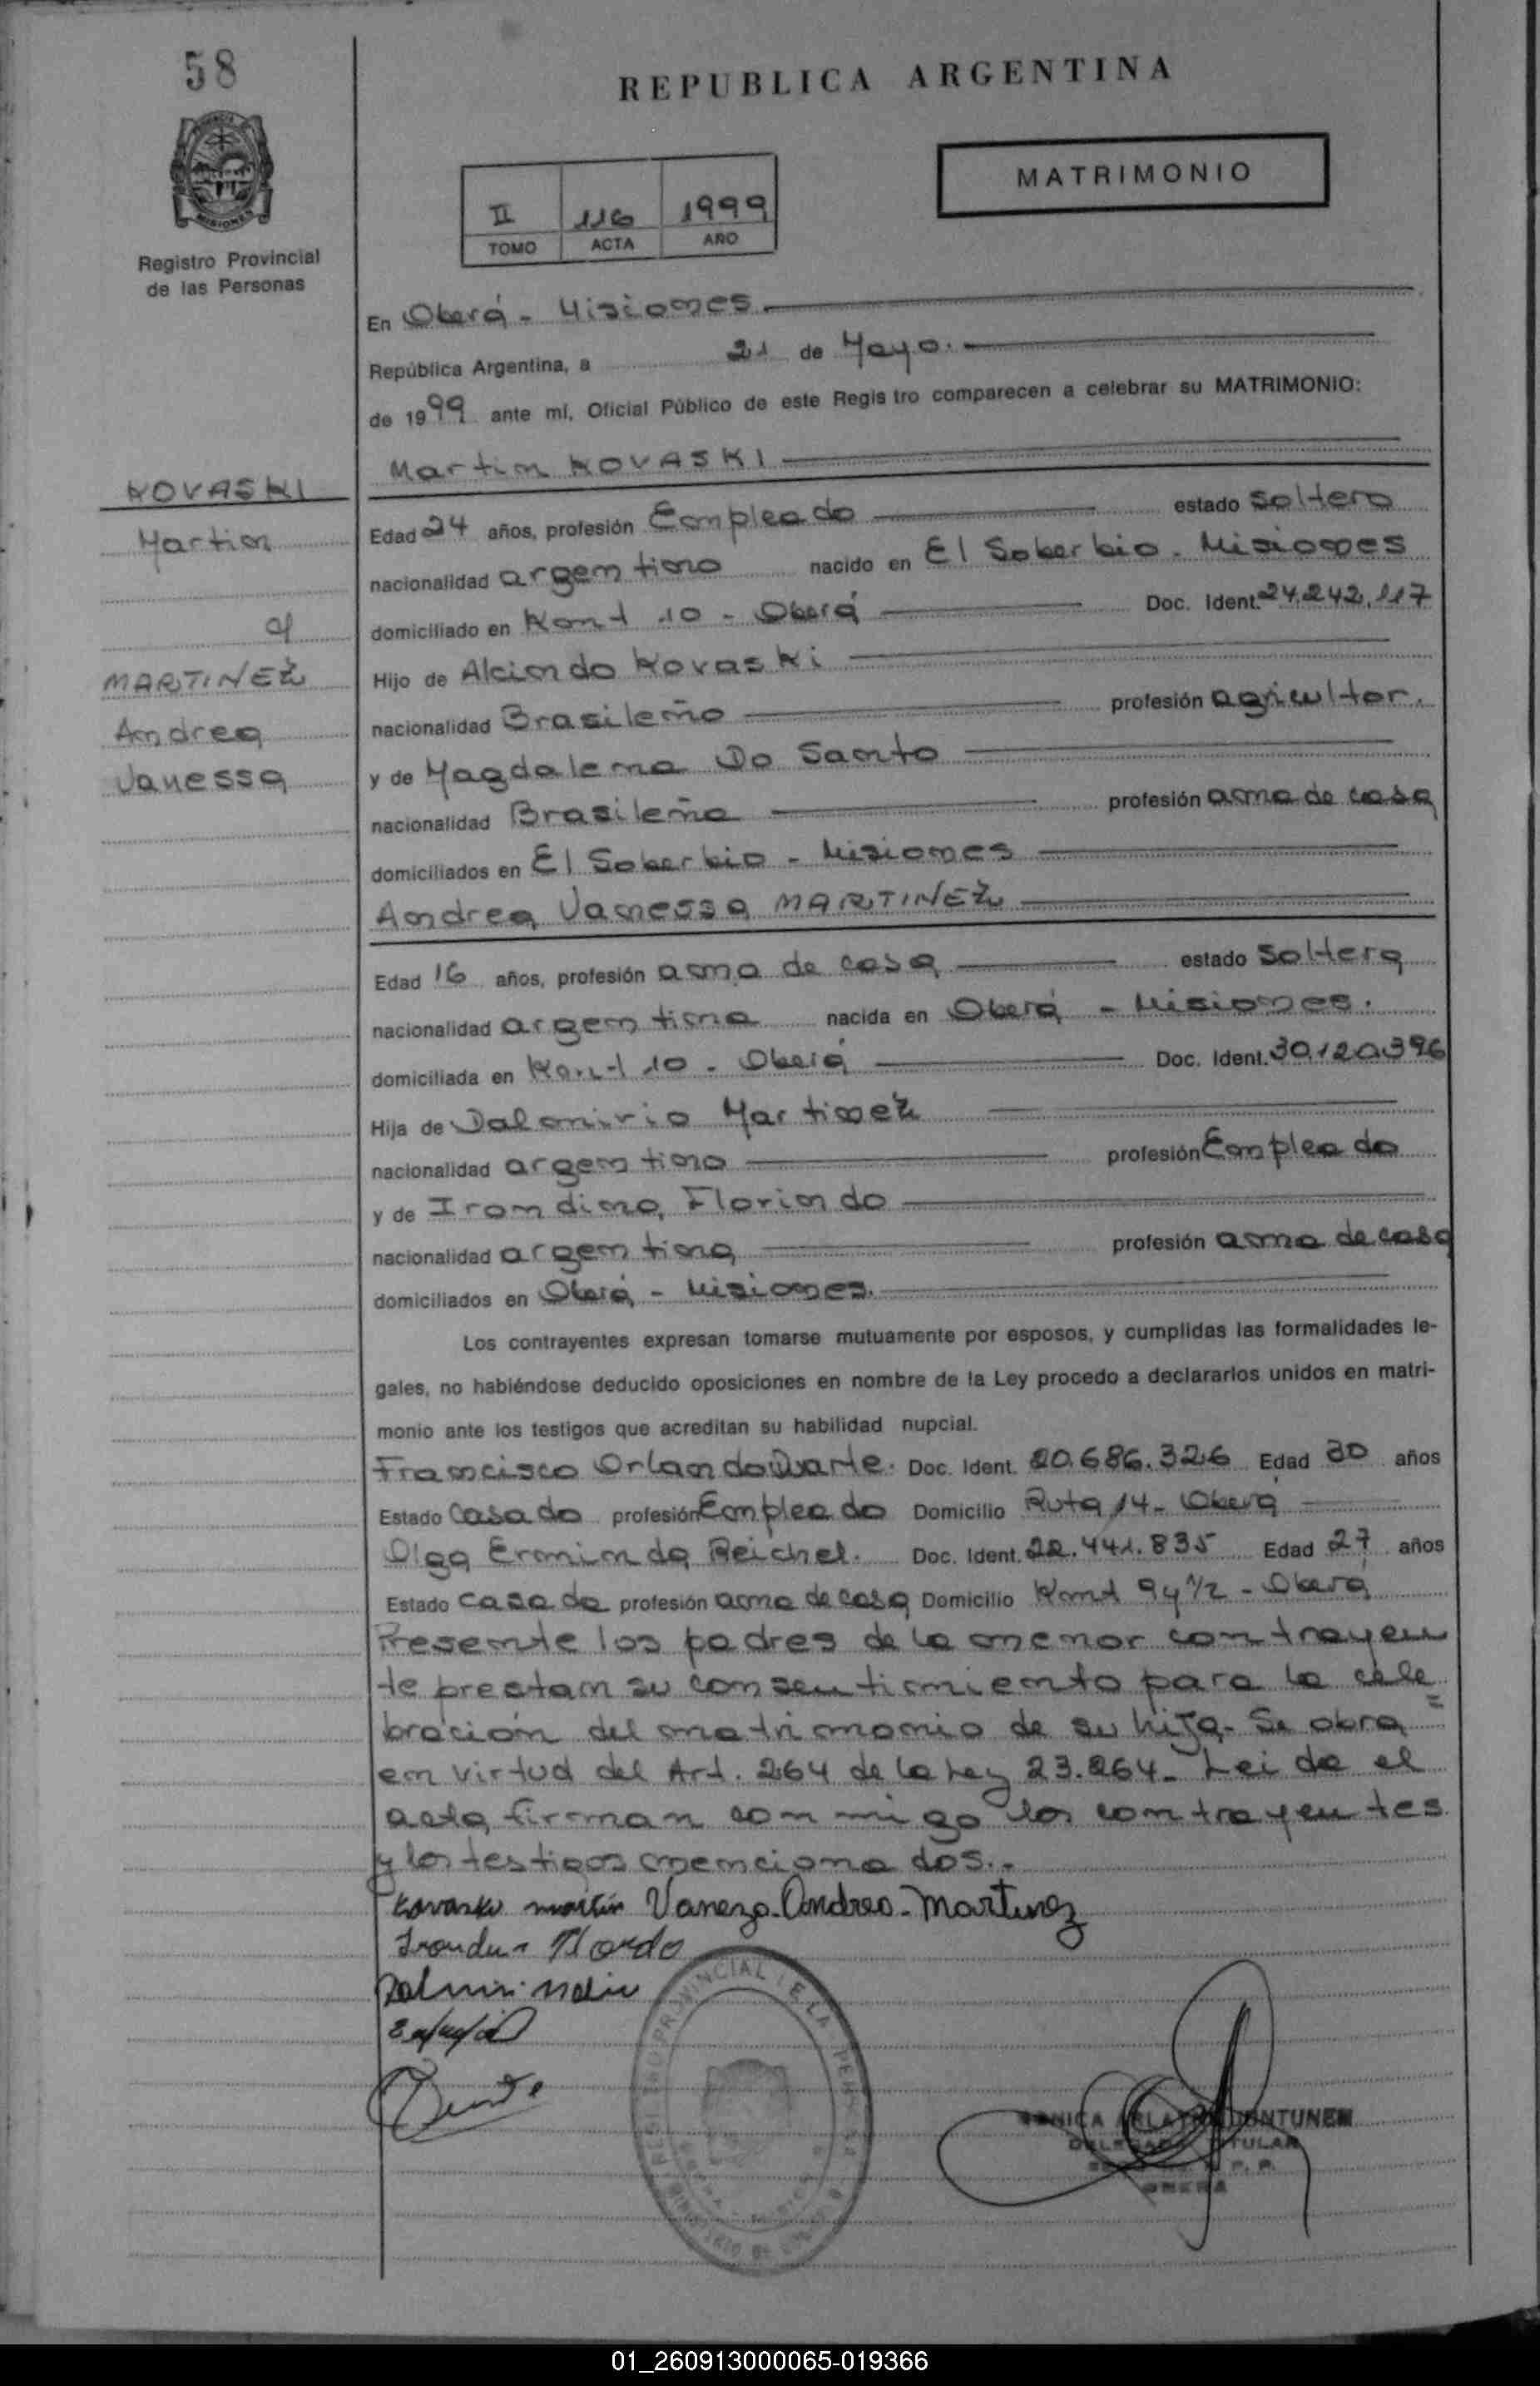 58
REPUBLICA ARGENTINA
MATRIMONIO
II 116 1999
TOMO ACTA AÑO
Registro Provincial
de las Personas
En Oberá - Misiones.
República Argentina, a 21 de Mayo.
de 1999 ante mí, Oficial Público de este Regis tro comparecen a celebrar su MATRIMONIO:
Martin KOVASKI
KOVASKI
Martin
c/
MARTINEZ
Andrea
Vanessa
Edad 24 años, profesión Empleado estado Soltero
nacionalidad argentino nacido en El Soberbio - Misiones
domiciliado en Km 10 - Oberá Doc. Ident. 24.242.117
Hijo de Alcindo Kovaski
nacionalidad Brasileño profesión agricultor.
y de Magdalena Do Santo
nacionalidad Brasileña profesión ama de casa
domiciliados en El Soberbio - Misiones
Andrea Vanessa MARTINEZ
Edad 16 años, profesión ama de casa estado Soltera
nacionalidad argentina nacida en Oberá - Misiones.
domiciliada en Km 10 - Oberá Doc. Ident. 30.120.396
Hija de Dalmirio Martinez
nacionalidad argentino profesión Empleado
y de Irondina Florindo
nacionalidad argentina profesión ama de casa
domiciliados en Oberá - Misiones.
Los contrayentes expresan tomarse mutuamente por esposos, y cumplidas las formalidades le-
gales, no habiéndose deducido oposiciones en nombre de la Ley procedo a declararlos unidos en matri-
monio ante los testigos que acreditan su habilidad nupcial.
Francisco Orlando Duarte. Doc. Ident. 20.686.326 Edad 30 años
Estado Casado profesión Empleado Domicilio Ruta 14 - Oberá
Olga Erminda Reichel. Doc. Ident. 22.441.835 Edad 27 años
Estado casada profesión ama de casa Domicilio Km 9 y 1/2 - Oberá
Presente los padres de la menor contrayen
te prestan su consentimiento para la cele
bración del matrimonio de su hija. Se obra =
en virtud del Art. 264 de la Ley 23.264. Leida el
acta, firman conmigo los contrayentes
y los testigos mencionados..-
Kovaski martin Vaneza. Andrea. Martinez
REGISTRO PROVINCIAL DE LAS PERSONAS
DELEGADA TITULAR
OBERA
01_260913000065-019366